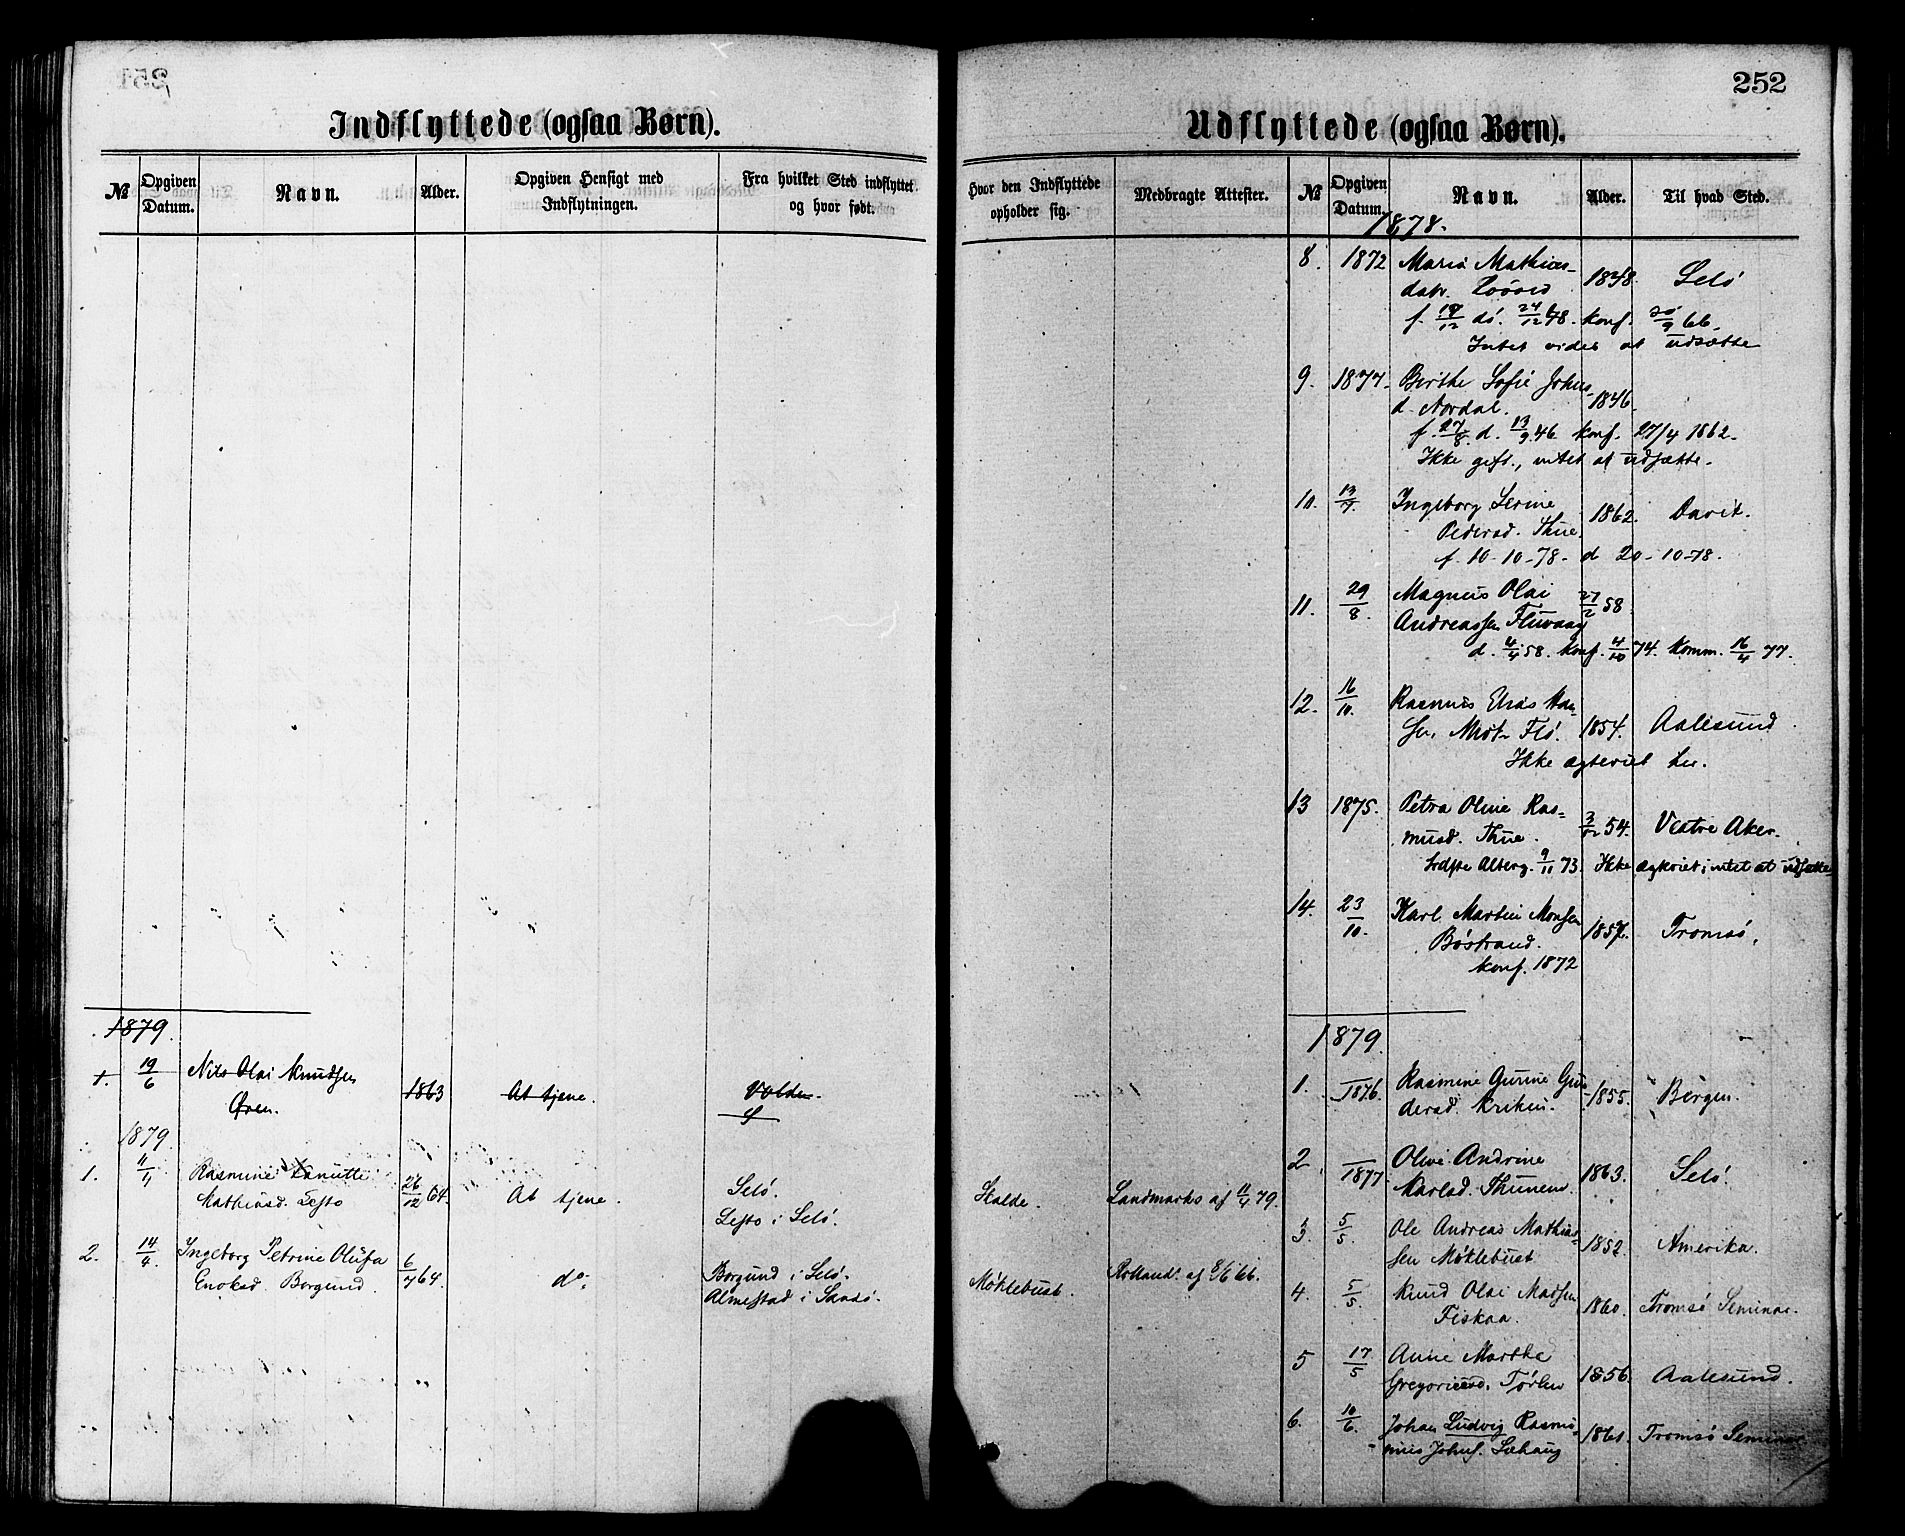 252
Indflyttede (ogsaa Børn).
№
Opgiven Datum.
Navn.
Alder.
Opgiven Hensigt med Indflytningen.
Fra hvilket Sted indflyttet og hvor født.
1879.
1. 19/6 Nils Olai Knudsen 1863 At tjene. Volden.
Øren.
1879
1. 11/4 Rasmine
Mathiasd. Lesto 26/12 64. At tjene. Selö.
Lesto i Selö.
2. 14/4. Ingeborg Petrine Olufa 6/7 64. do. Borgund i Selö.
Enoksd. Borgund. Almestad i Sandö.
Udflyttede (ogsaa Børn).
Hvor den Indflyttede opholder sig.
Medbragte Attester.
№
Opgiven Datum.
Navn.
Alder.
Til hvad Sted.
Skalde. Landmarks af 11/4 79.
Möklebust. af 8/6 66.
1878.
8. 1872 Maria Mathias-
datr. 1848. Selö
f. 19/12 dö. 24/12 48. konf. 30/9 66.
Intet vides at udsætte
9. 1877. Berthe Sofie Johns
d. Nordal. 1846.
f. 27/8. d. 13/9 46 konf. 27/4 1862.
Ikke gift., intet at udsætte.
10. 13/7. Ingeborg Serine 1862. Davik.
Pedersd. Thue.
f. 10-10-78- d 20-10-78.
11. 29/8. Magnus Olai 27/2 58
Andreassen Fluvaag
d. 4/4 58. konf. 4/10 74. komm. 16/4 77.
12. 16/10. Rasmus Elias Han-
sen, Mök. Flö. 1854. Aalesund.
Ikke ægteviet her.
13 1875. Petra Oline Ras=
musd. Thue. 3/12 54. Vestre Aker.
Sidste Alterg. 9/11 73. Ikke ægteviet; intet at udsætte
14. 23/10. Karl Martin Monsen
Böstrand. 1857. Tromsö.
konf. 1872
1879.
1. 1876. Rasmine Gurine Gun-
dersd. Kriken. 1855. Bergen.
2. 1877. Olive Andrine 1863. Selö.
Karlsd. Thunem.
3. 5/5 Ole Andreas Mathias-
sen Möklebust 1852. Amerika.
4. 5/5. Knud Olai Madsen 1860. Tromsö Seminar.
Fiskaa.
5 17/5 Anne Marthe
Gregoriusd. 1856. Aalesund.
6. 10/6. Johan Ludvig Rasmu-
nus Johns. Sæhaug 1861. Tromsö Seminar